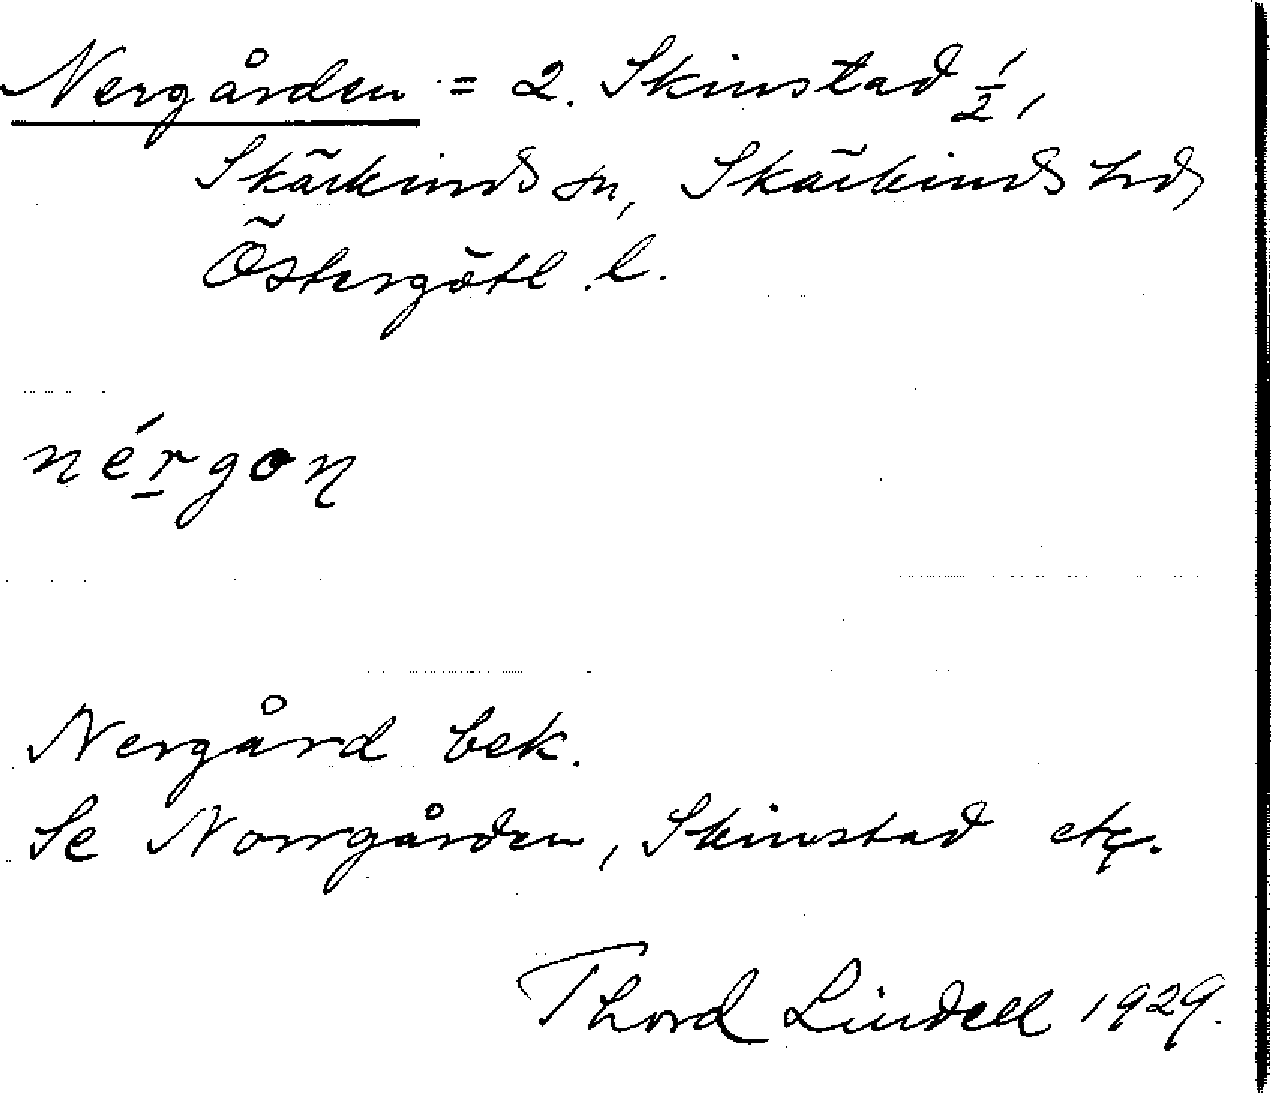 Nergården = 2. Skinstad ½,
Skärkinds sn, Skärkinds hd,
Östergötl. l.
nérgon
Nergård bek.
Se Norrgården, Skinstad etc.
Thord Lindell 1929.